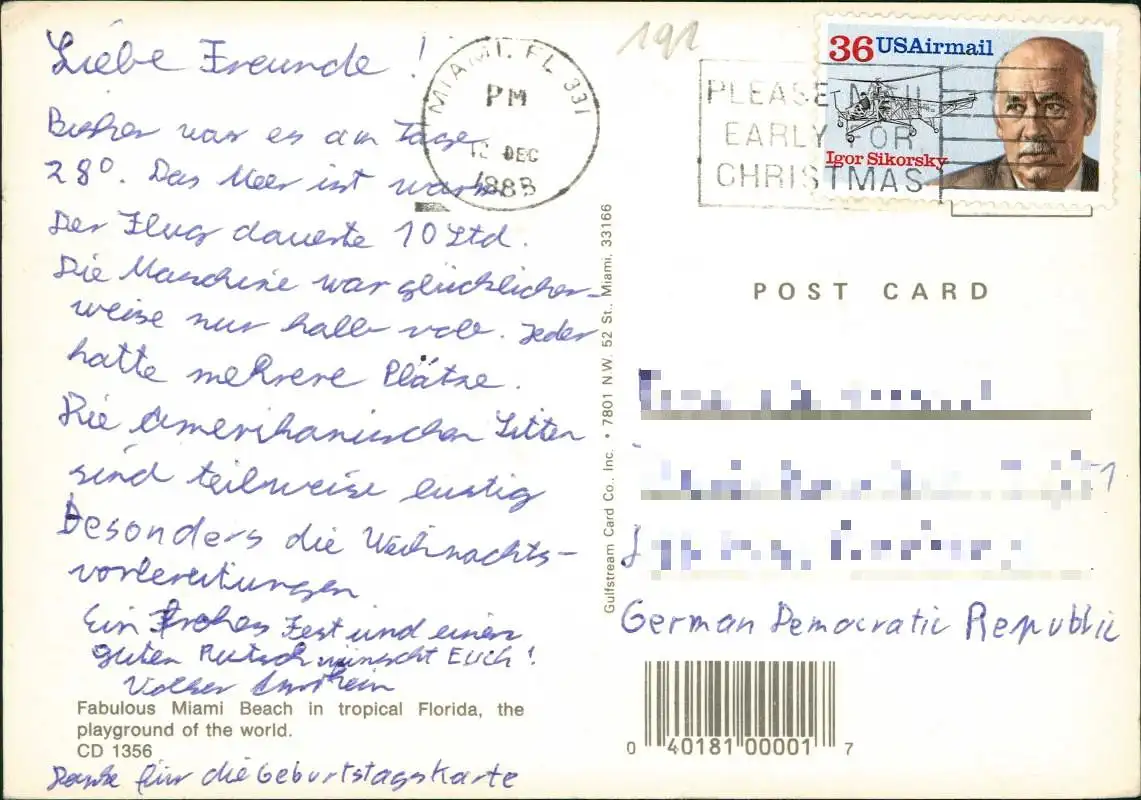 Liebe Freunde!
Bisher war es am Tage
28°. Das Meer ist warm
Der Flug dauerte 10 Std.
Die Maschine war glücklicher-
weise nur halb voll. Jeder
hatte mehrere Plätze.
Die Amerikanischen Sitten
sind teilweise lustig
Besonders die Weihnachts-
vorbereitungen
Ein Frohes Fest und einen
guten Rutsch wünscht Euch!
Volker
Fabulous Miami Beach in tropical Florida, the
playground of the world.
CD 1356
Danke für die Geburtstagskarte
MIAMI, FL 331
PM
DEC
191
PLEASE MAIL
EARLY FOR
CHRISTMAS
36 USAirmail
Igor Sikorsky
Gulfstream Card Co., Inc. • 7801 N.W. 52 St., Miami, 33166
POST CARD
German Democratic Republic
0 40181 00001 7